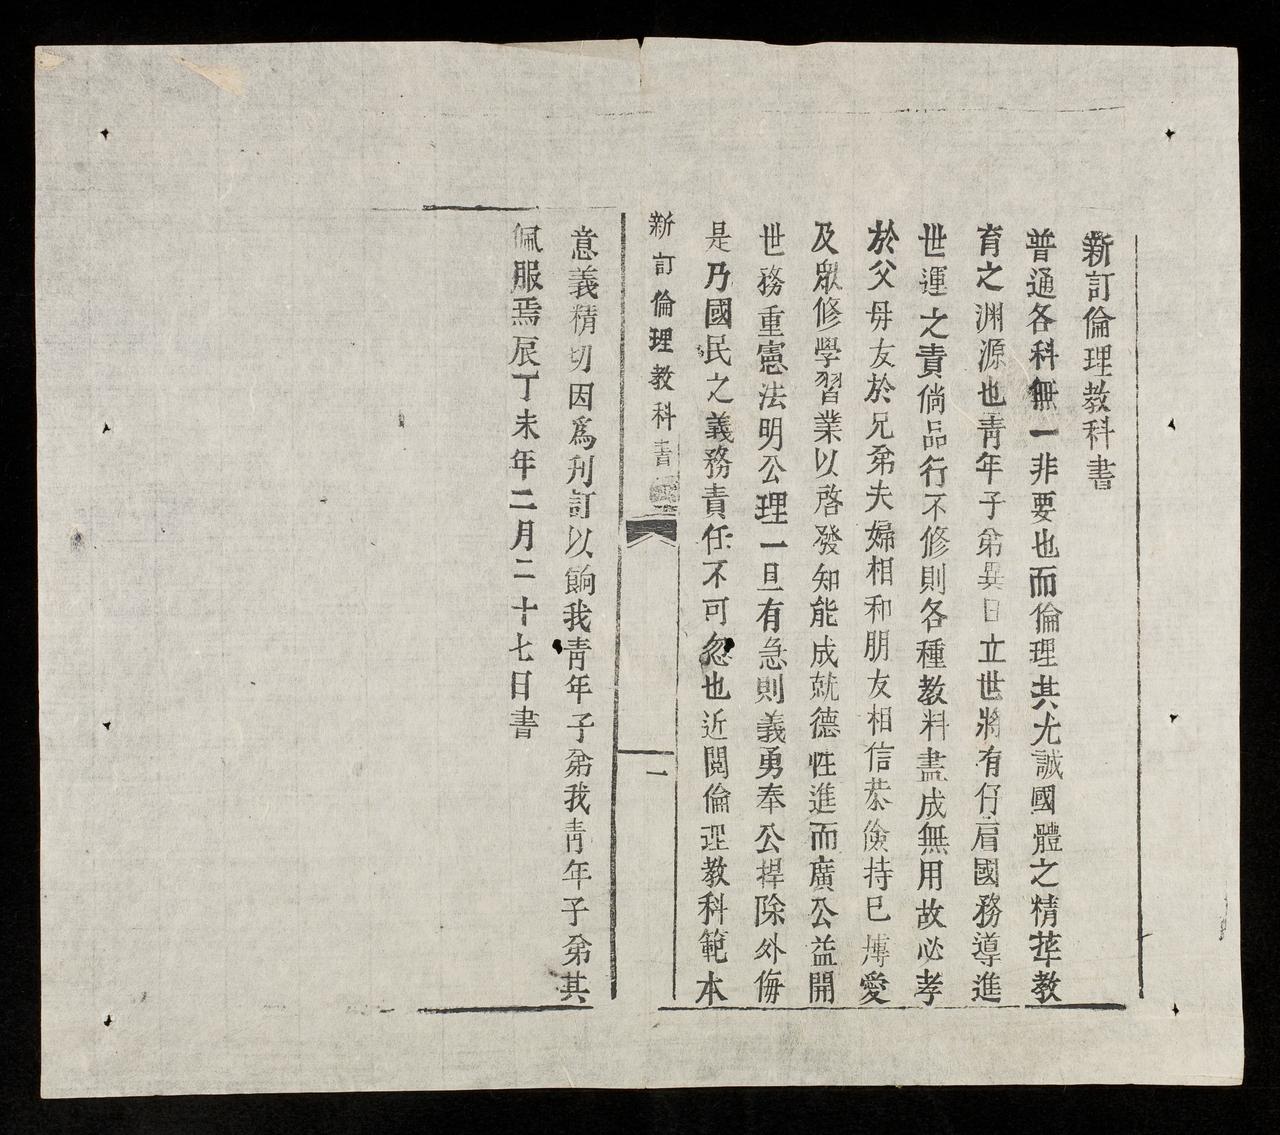 新訂倫理教科書
普通各科無一非要也而倫理其尤誠國體之精華教
育之淵源也靑年子弟異日立世將有仔肩國務導進
世運之責倘品行不修則各種教料盡成無用故必孝
於父母友於兄弟夫婦相和朋友相信恭儉持已博愛
及眾修學習業以啓發知能成就德性進而廣公益開
世務重憲法明公理一旦有急則義勇奉公捍除外侮
是乃國民之義務責任不可忽也近閱倫理教科範本
新訂倫理教科書
一
意義精切因爲刋訂以餉我靑年子弟我靑年子弟其
佩服焉辰丁未年二月二十七日書